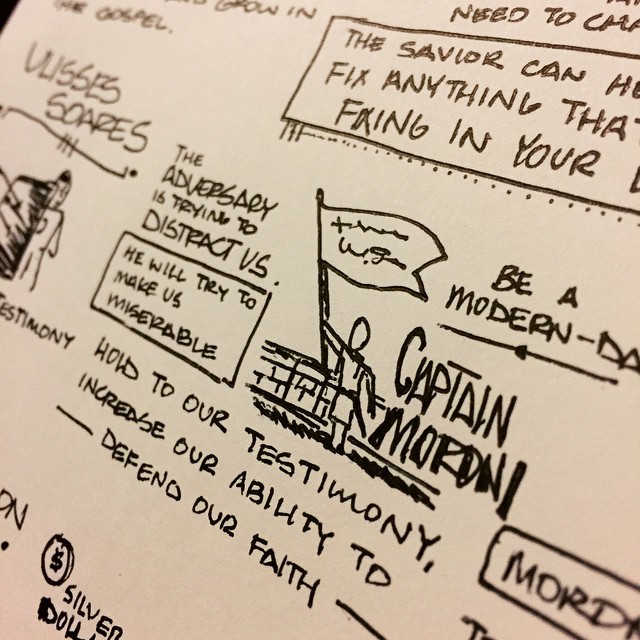 AND GROW IN
THE GOSPEL.
NEED TO
THE SAVIOR CAN
FIX ANYTHING THAT
FIXING IN YOUR
ULISSES
SOARES
THE
ADVERSARY
IS TRYING TO
DISTRACT US.
HE WILL TRY TO
MAKE US
MISERABLE
BE A
MODERN-DA
CAPTAIN
MORONI
TESTIMONY
HOLD TO OUR TESTIMONY,
INCREASE OUR ABILITY TO
— DEFEND OUR FAITH —
ON
$
SILVER
DOLL
MORO
TO